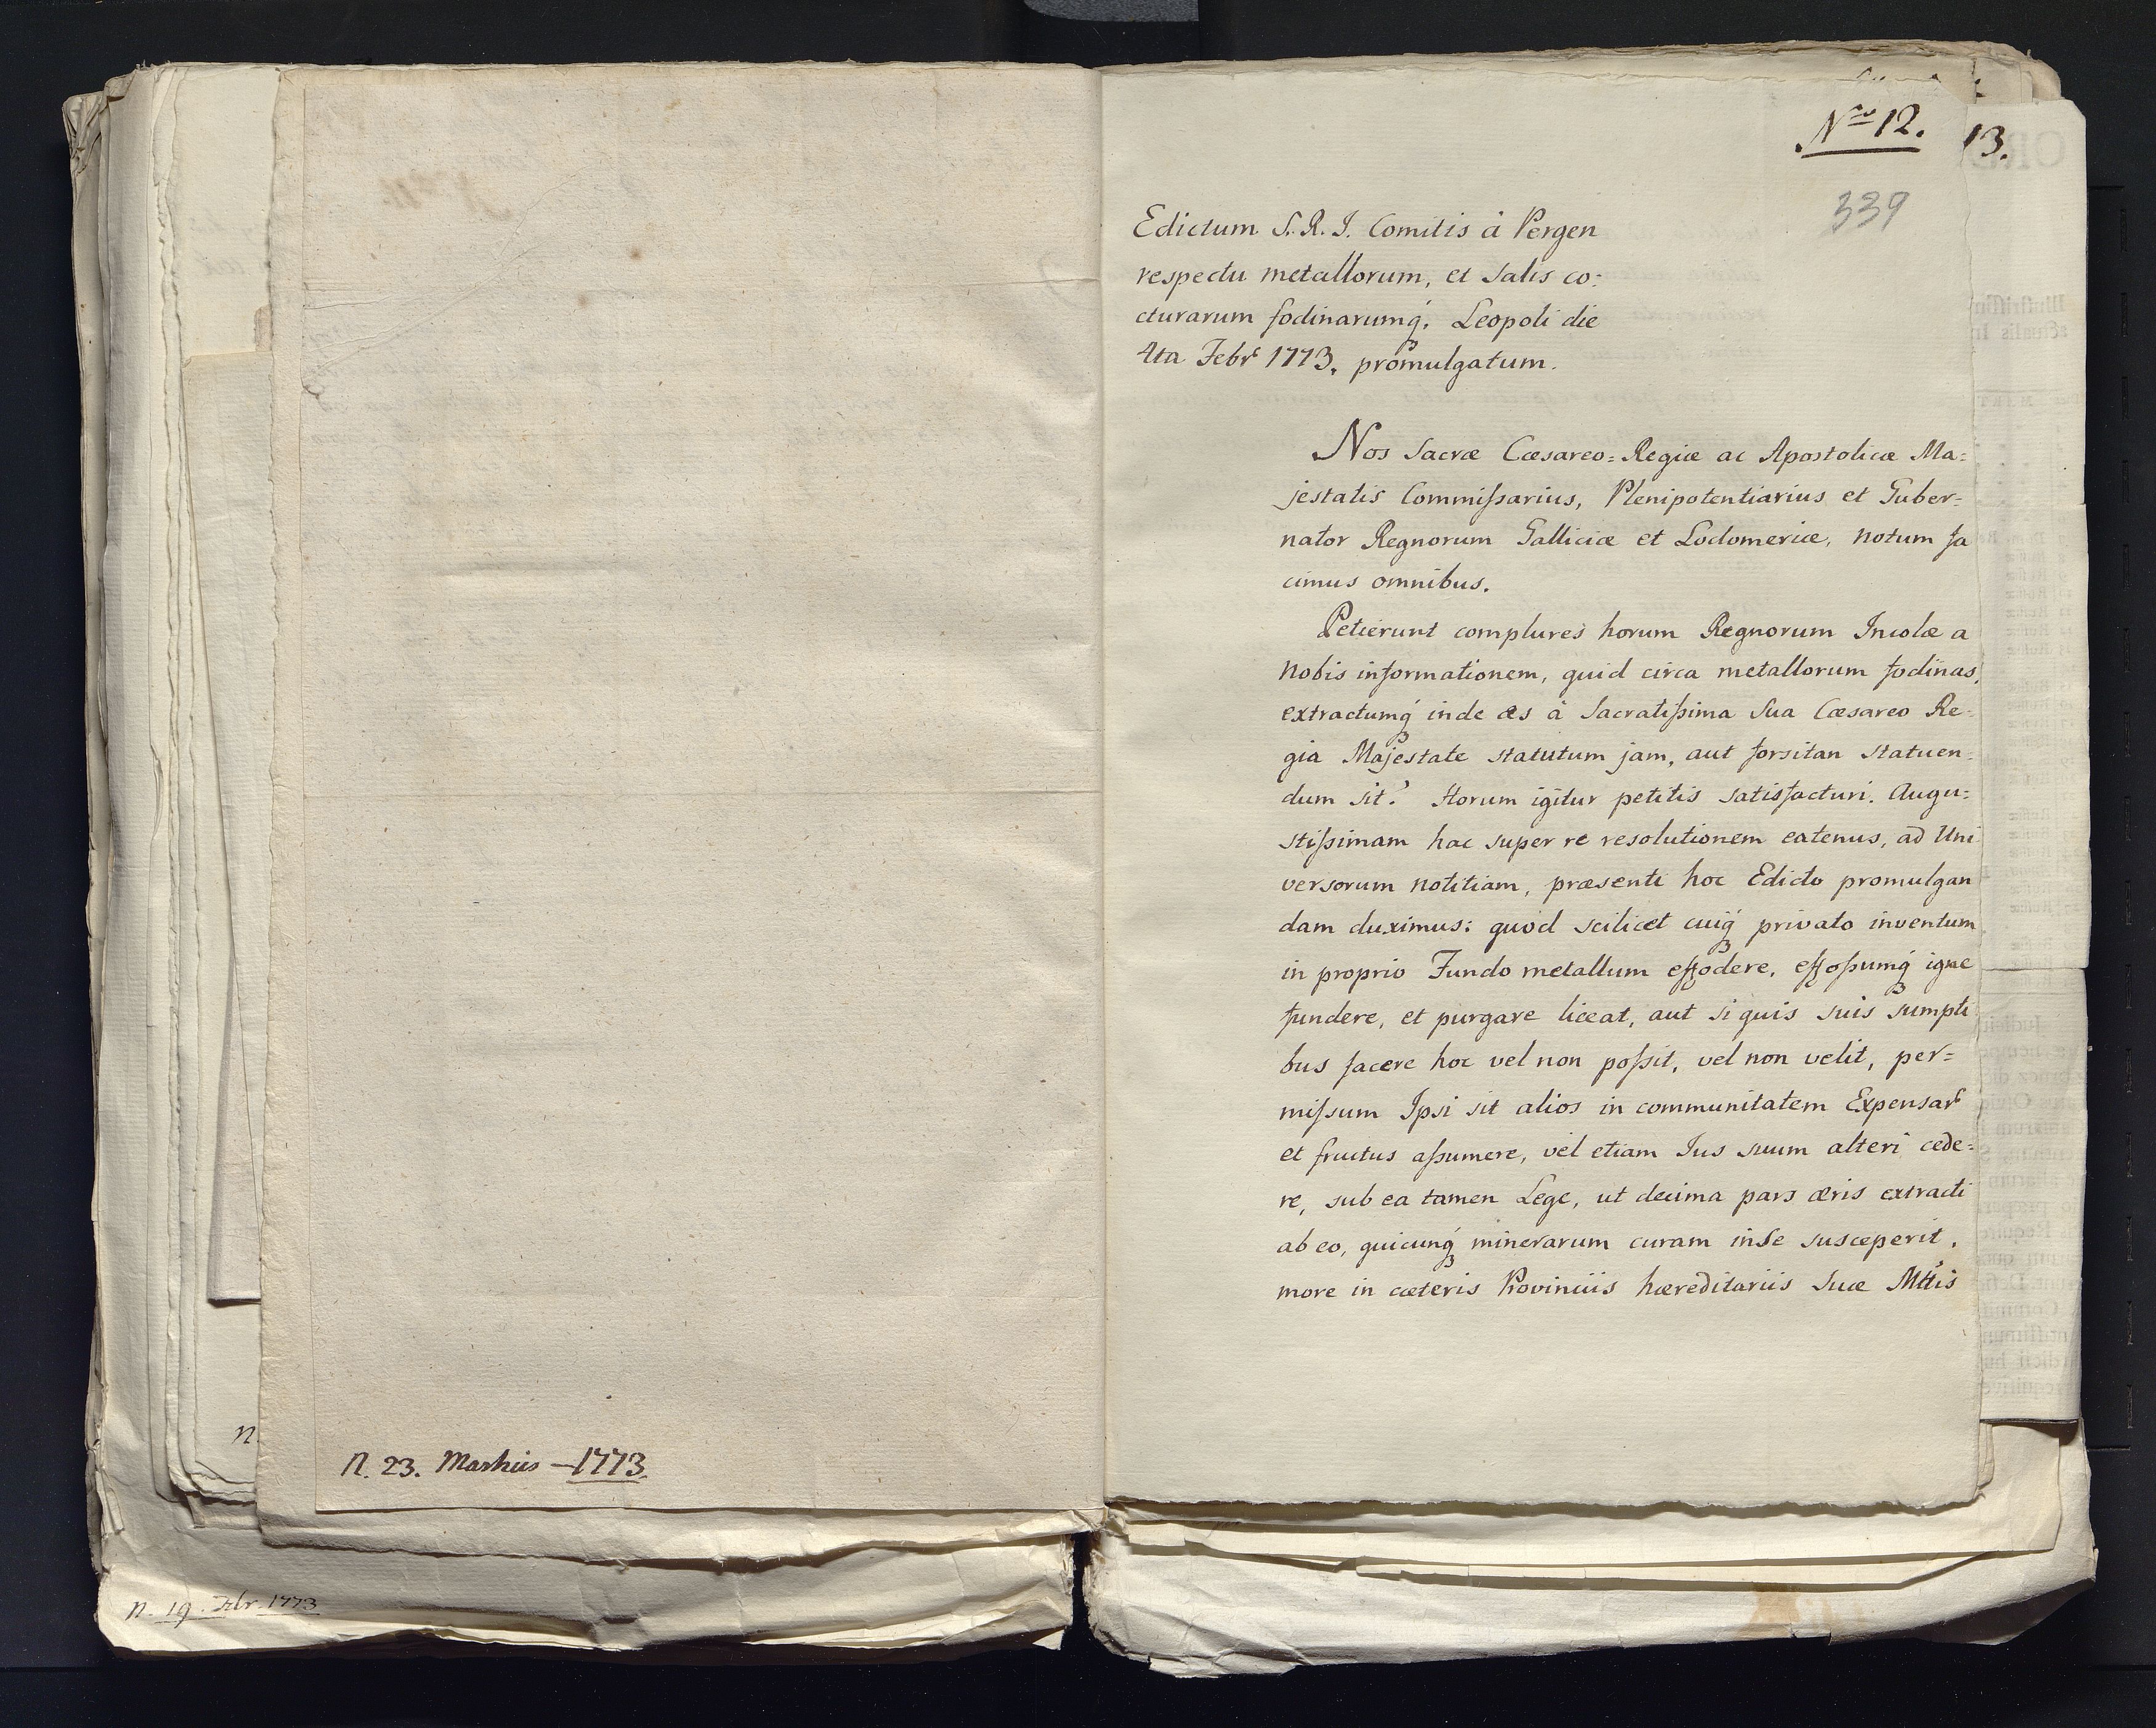 N. 23. Martius – 1773.
n. 19. Febr 1773
n
Nro 12.
13.
339
Edictum S. R. I. Comitis à Pergen
respectu metallorum, et Salis co:
cturarum fodinarumq́; Leopoli die
4ta Febrs 1773. promulgatum.
Nos Sacræ Cæsareo=Regiæ ac Apostolicæ Ma=
jestatis Commiſsarius, Plenipotentiarius et Guber=
nator Regnorum Galliciæ et Lodomeriæ, notum fa
cimus omnibus.
Petierunt complures horum Regnorum Incolæ a
nobis informationem, quid circa metallorum fodinas,
extractumq́; inde æs à Sacratiſsima Sua Cæsareo Re=
gia Majestate statutum jam, aut forsitan statuen=
dum sit? Horum igitur petitis satisfacturi. Augu=
stiſsimam hac super re resolutionem eatenus, ad Uni
versorum notitiam, præsenti hoc Edicto promulgan
dam duximus: quod scilicet cuiq́; privato inventum
in proprio Fundo metallum effodere, effoſsumq́; igne
fundere, et purgare liceat, aut si quis suis sumpti
bus facere hoc vel non poſsit, vel non velit, per=
miſsum Ipsi sit alios in communitatem Expensar
et fructus aſsumere, vel etiam Jus suum alteri cede=
re, sub ea tamen Lege, ut decima pars æris extracti
ab eo, quicunq́; minerarum curam in Se susceperit,
more in cæteris Provinciis hæreditariis Suæ Mttis